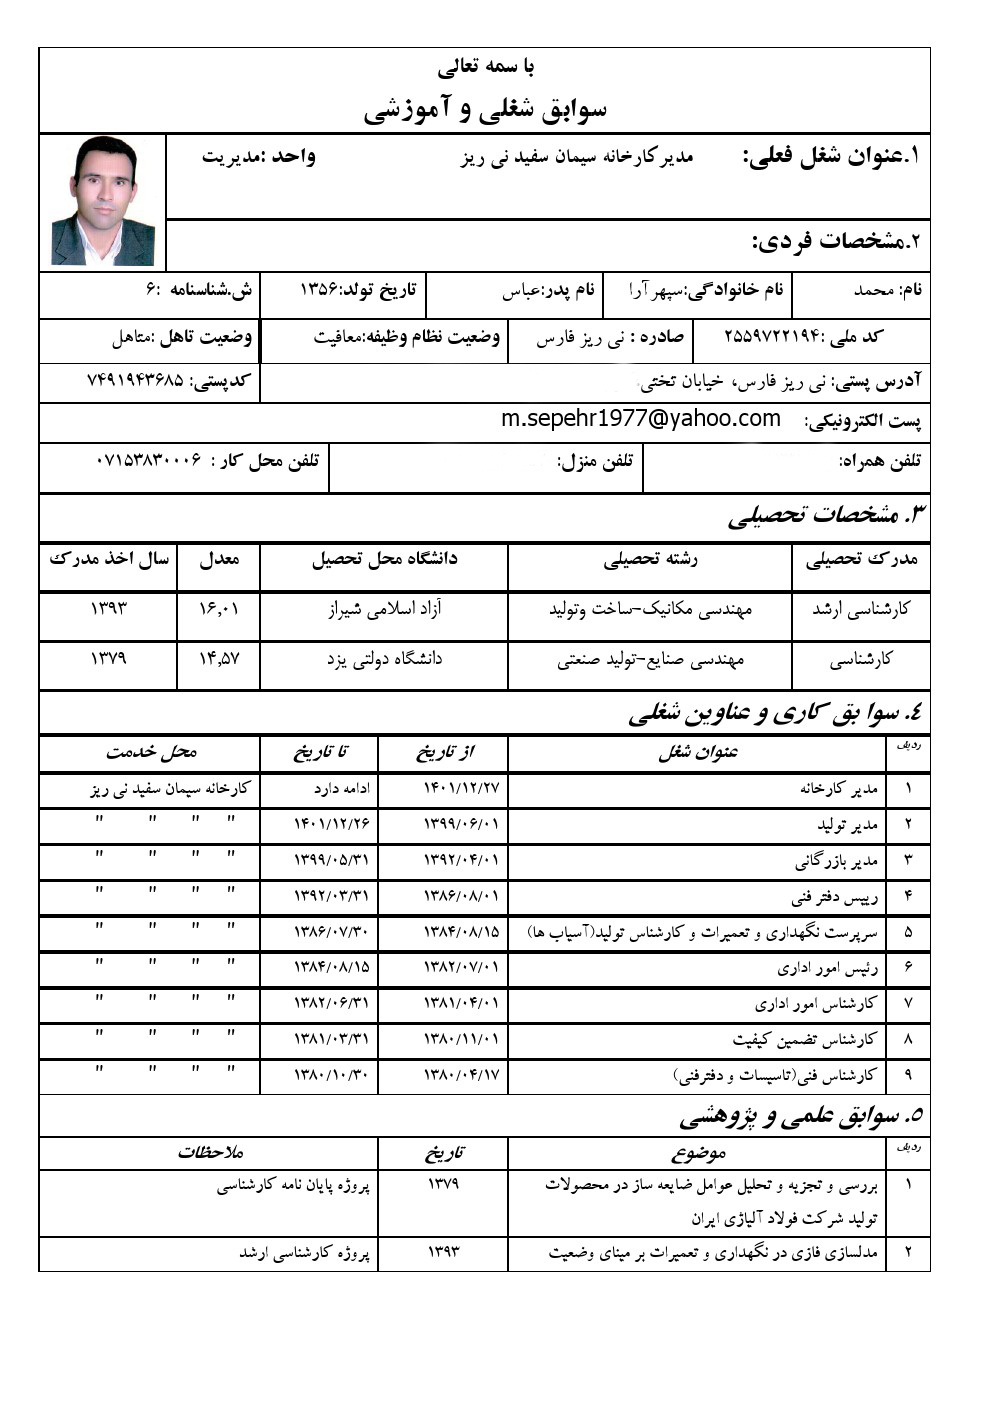 با سمه تعالی
سوابق شغلی و آموزشی
۱.عنوان شغل فعلی: مدیرکارخانه سیمان سفید نی ریز واحد :مدیریت
۲.مشخصات فردی:
نام: محمد نام خانوادگی:سپهرآرا نام پدر:عباس تاریخ تولد:۱۳۵۶ ش.شناسنامه :۶
کد ملی :۲۵۵۹۷۲۲۱۹۴ صادره : نی ریز فارس وضعیت نظام وظیفه:معافیت وضعیت تاهل :متاهل
آدرس پستی: نی ریز فارس، خیابان تختی، کدپستی: ۷۴۹۱۹۴۳۶۸۵
پست الکترونیکی: m.sepehr1977@yahoo.com
تلفن همراه: تلفن منزل: تلفن محل کار : ۰۷۱۵۳۸۳۰۰۰۶
۳. مشخصات تحصیلی
مدرک تحصیلی رشته تحصیلی دانشگاه محل تحصیل معدل سال اخذ مدرک
کارشناسی ارشد مهندسی مکانیک-ساخت وتولید آزاد اسلامی شیراز ۱۶,۰۱ ۱۳۹۳
کارشناسی مهندسی صنایع-تولید صنعتی دانشگاه دولتی یزد ۱۴,۵۷ ۱۳۷۹
۴. سوا بق کاری و عناوین شغلی
ردیف عنوان شغل از تاریخ تا تاریخ محل خدمت
۱ مدیر کارخانه ۱۴۰۱/۱۲/۲۷ ادامه دارد کارخانه سیمان سفید نی ریز
۲ مدیر تولید ۱۳۹۹/۰۶/۰۱ ۱۴۰۱/۱۲/۲۶ " " " "
۳ مدیر بازرگانی ۱۳۹۲/۰۴/۰۱ ۱۳۹۹/۰۵/۳۱ " " " "
۴ رییس دفتر فنی ۱۳۸۶/۰۸/۰۱ ۱۳۹۲/۰۳/۳۱ " " " "
۵ سرپرست نگهداری و تعمیرات و کارشناس تولید(آسیاب ها) ۱۳۸۴/۰۸/۱۵ ۱۳۸۶/۰۷/۳۰ " " " "
۶ رئیس امور اداری ۱۳۸۲/۰۷/۰۱ ۱۳۸۴/۰۸/۱۵ " " " "
۷ کارشناس امور اداری ۱۳۸۱/۰۴/۰۱ ۱۳۸۲/۰۶/۳۱ " " " "
۸ کارشناس تضمین کیفیت ۱۳۸۰/۱۱/۰۱ ۱۳۸۱/۰۳/۳۱ " " " "
۹ کارشناس فنی(تاسیسات و دفترفنی) ۱۳۸۰/۰۴/۱۷ ۱۳۸۰/۱۰/۳۰ " " " "
۵. سوابق علمی و پژوهشی
ردیف موضوع تاریخ ملاحظات
۱ بررسی و تجزیه و تحلیل عوامل ضایعه ساز در محصولات ۱۳۷۹ پروژه پایان نامه کارشناسی
تولید شرکت فولاد آلیاژی ایران
۲ مدلسازی فازی در نگهداری و تعمیرات بر مبنای وضعیت ۱۳۹۳ پروژه کارشناسی ارشد